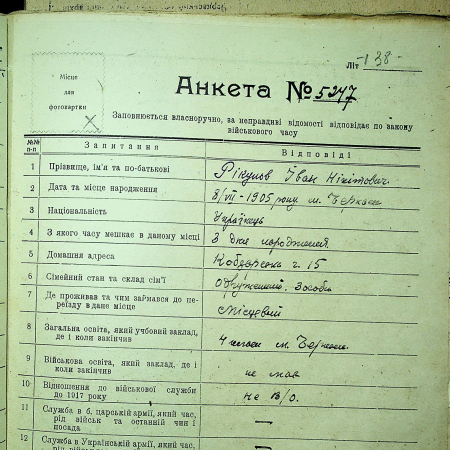 Літ -138-
Місце
для
фотокартки
Анкета № 5247
Заповнюється власноручно, за неправдиві відомості відповідає по закону
військового часу
№№ п-п Запитання Відповіді
1 Прізвище, ім'я та по-батькові Рікунов Іван Нікітович
2 Дата та місце народження 8/VII-1905 року м. Черкаси
3 Національність Українець
4 З якого часу мешкає в даному місці З дня народження
5 Домашня адреса ч. 15
6 Сімейний стан та склад сім'ї Одружений.
7 Де проживав та чим займався до пе-
реїзду в дане місце Місцевий
8 Загальна освіта, який учбовий заклад,
де і коли закінчив 4 класи м. Черкаси
9 Військова освіта, який заклад, де і
коли закінчив не мав
10 Відношення до військової служби
до 1917 року не в/о.
11 Служба в б. царській армії, який час,
рід військ та останній чин і
посада —
12 Служба в Українській армії, який час,